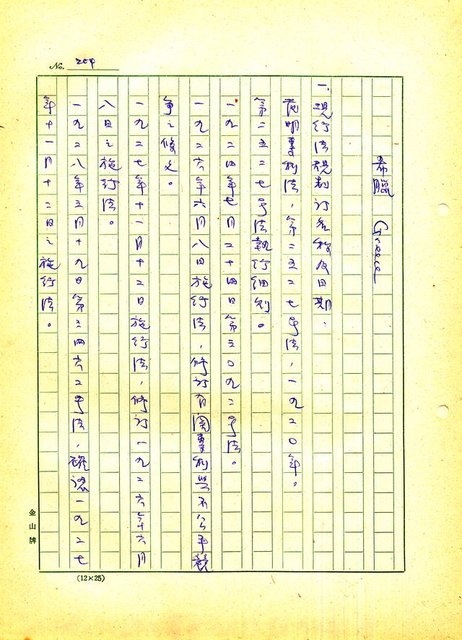 No. 204
希臘 Greece
一、現行法規制訂名稱及日期：
發明專利法，第二五二七號法，一九二〇年。
第二五二七號法執行細則。
一九二四年七月二十四日第三〇九二號法。
一九二六年六月八日施行法，修訂有關專利與不公平競
爭之條文。
一九二七年十一月十二日施行法，修訂一九二六年六月
八日之施行法。
一九二八年三月十九日第三四六二號法，確認一九二七
年十一月十二日之施行法。
金山牌
(12×25)